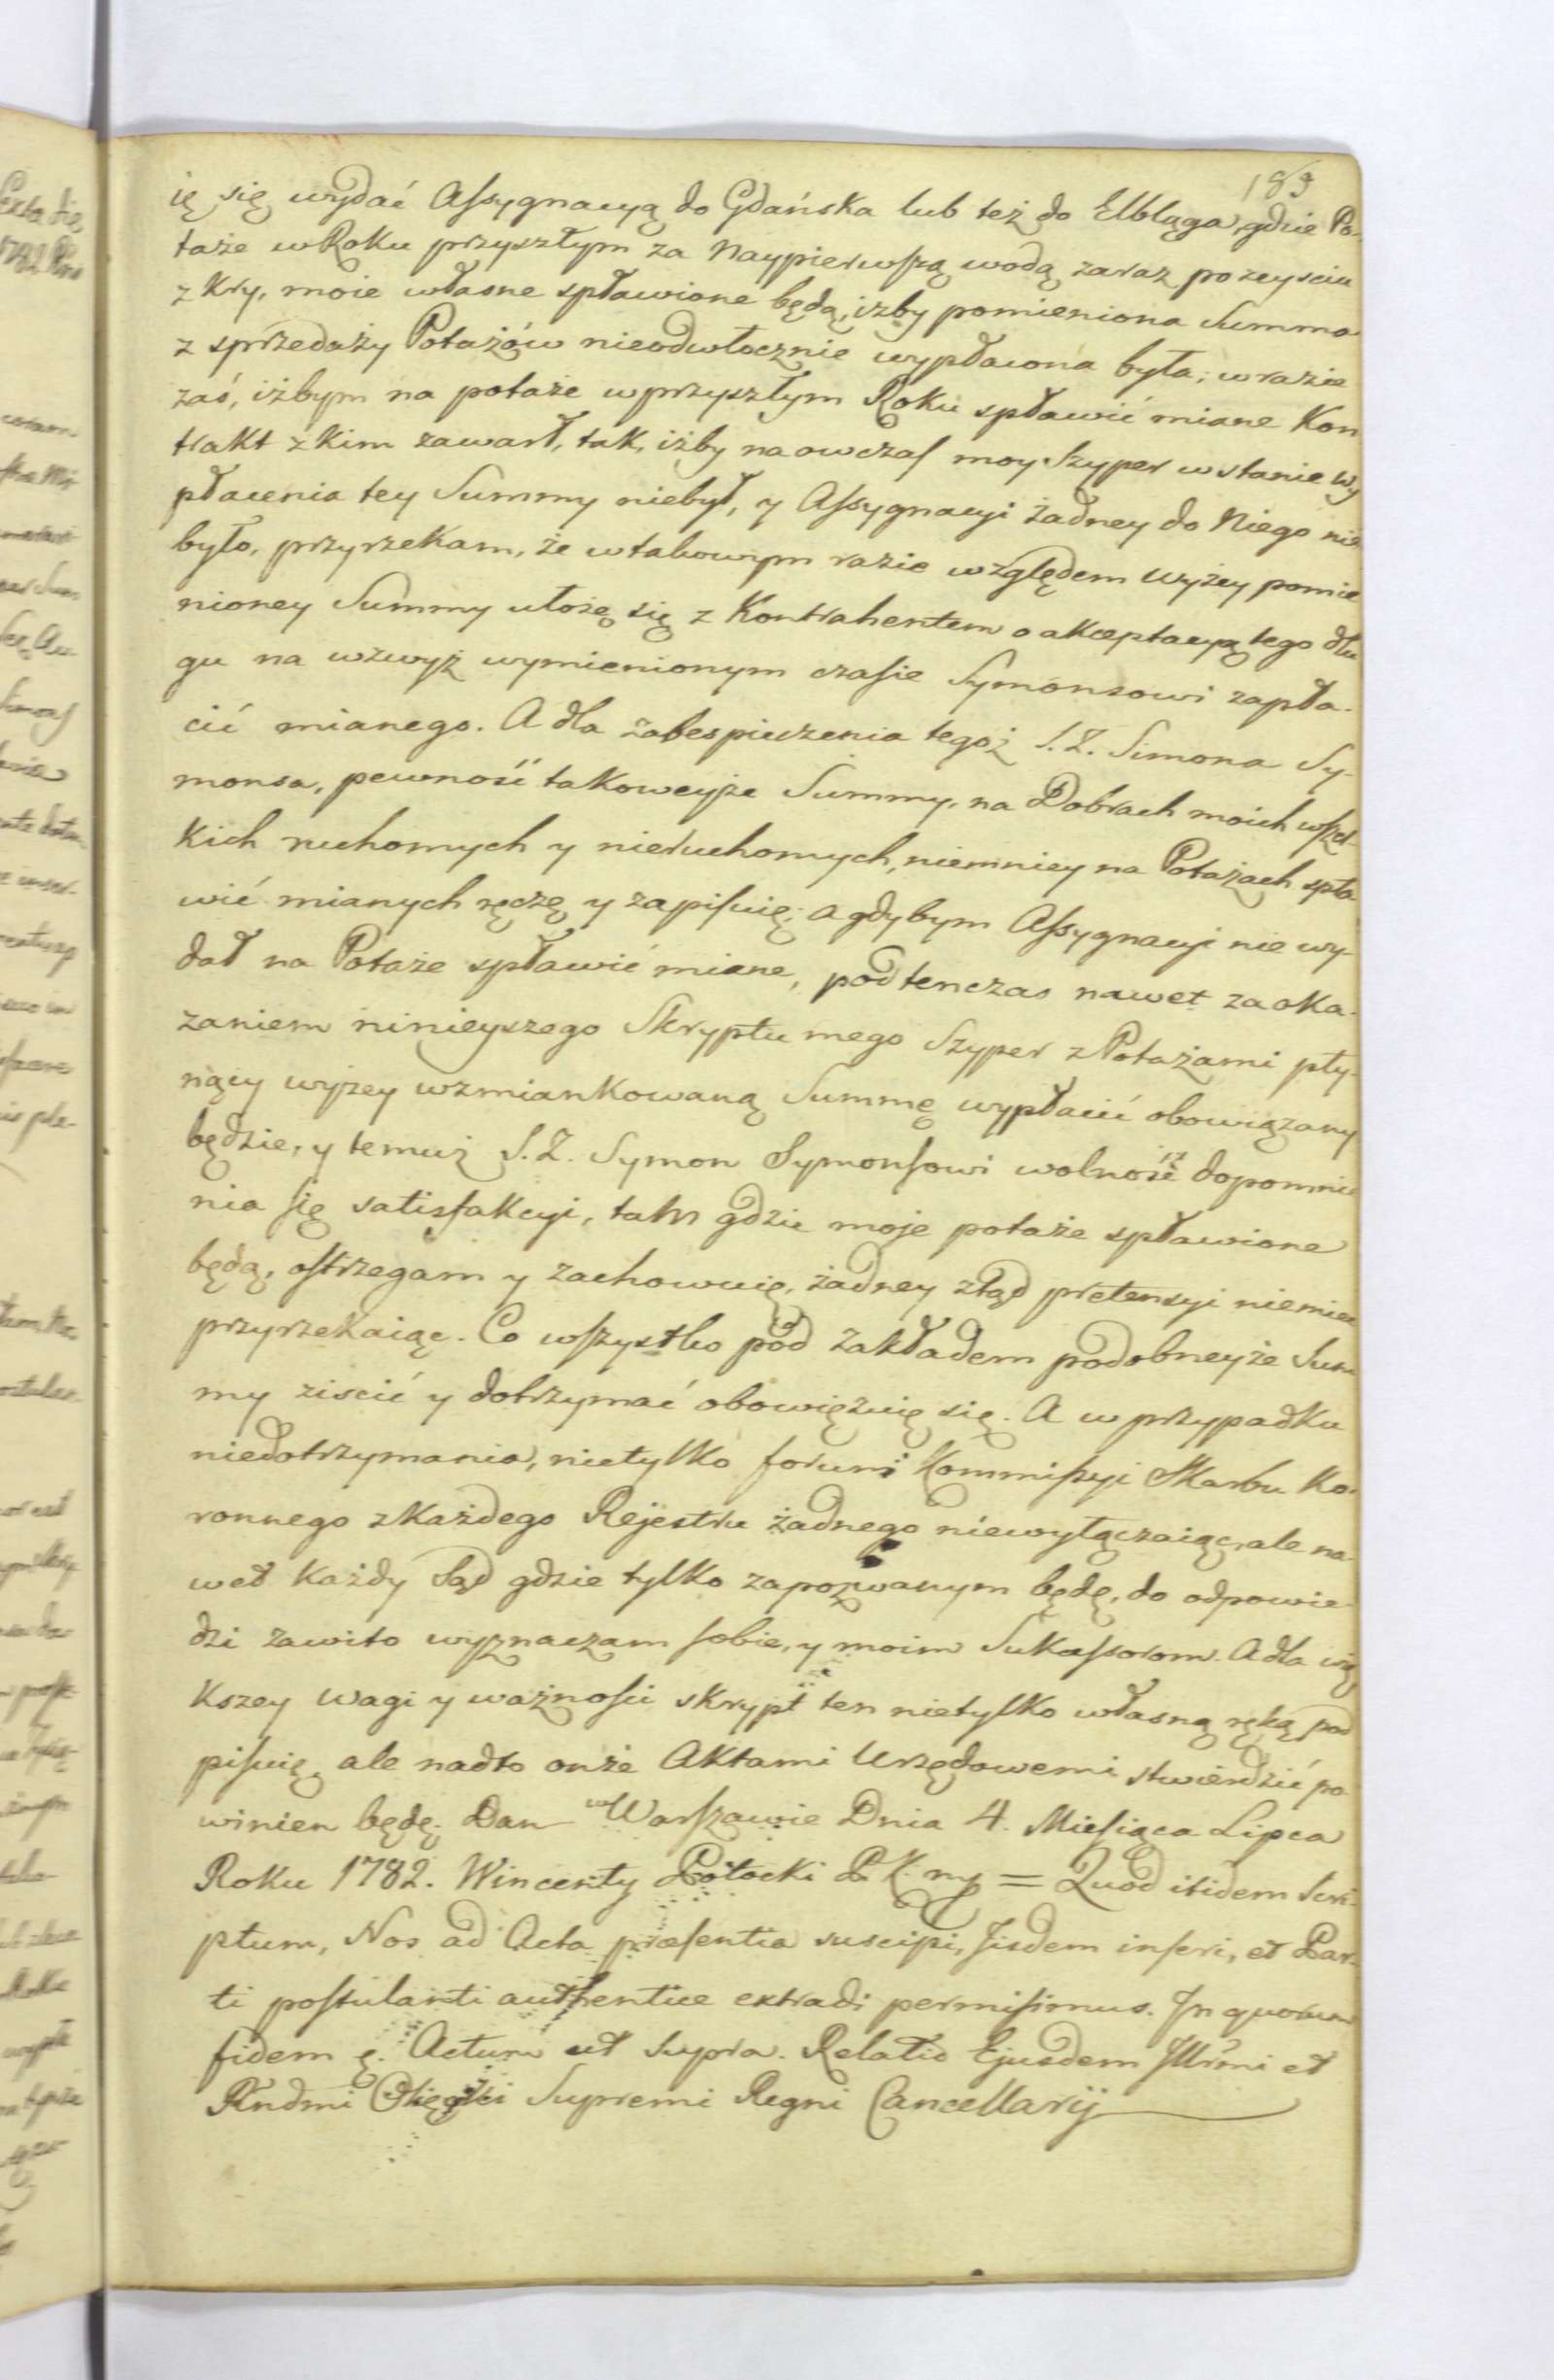 183
ię się wydać Assygnacyą do Gdańska lub też do Elbląga, gdzie Po-
taże w Roku przyszłym za Naypierwszą wodą zaraz po zeysciu
z Kry, moie własne spławione będą, izby pomieniona Summa
z sprzedaży Potażów nieodwłocznie wypłacona była; w razie
zaś, iżbym na potaże w przyszłym Roku spławić miane Kon
trakt z kim zawarł, tak, iżby na owczas moy Szyper w stanie wy
płacenia tey Summy niebył, y Assygnacyi żadney do Niego nie
było, przyrzekam, że w takowym razie względem wyżey pomie
nioney Summy ułożę się z Kontrahentem o akceptacyą tego dłu
gu na wzwyż wymienionym czasie Symonsowi zapła-
cić mianego. A dla zabespieczenia tegoż S. Z. Simona Sy-
monsa, pewność takoweyże Summy, na Dobrach moich wszel-
kich ruchomych y nieruchomych, niemniey na Potażach spła
wić mianych ręczę y zapisuię; a gdybym Assygnacyi nie wy-
dał na Potaże spławić miane, podtenczas nawet za oka-
zaniem ninieyszego Skryptu mego Szyper z Potażami pły-
nący wyżey wzmiankowaną Summę wypłacić obowiązany
będzie, y temuż S. Z. Symon Symonsowi wolność dopomnie
nia się satisfakcyi, tam gdzie moje potaże spławione
będą, ostrzegam y zachowuię, żadney ztąd pretensyi niemieć
przyrzekaiąc. Co wszystko pod zakładem podobneyże Sum
my ziscić y dotrzymać obowięzuię się. A w przypadku
niedotrzymania, nietylko forum Kommissyi Skarbu Ko-
ronnego z każdego Rejestru żadnego niewyłączaiąc, ale na-
wet każdy Sąd gdzie tylko zapozwanym będę, do odpowie-
dzi zawito wyznaczam sobie, y moim Sukcessorom. A dla wię
kszey wagi y ważności skrypt ten nietylko własną ręką pod
pisuię, ale nadto onże Aktami Urzędowemi stwierdzić po
winien będę. Dan w Warszawie Dnia 4. Miesiąca Lipca
Roku 1782. Wincenty Potocki P. K. mp = Quod itidem Scri-
ptum, Nos ad Acta præsentia suscipi, Jisdem inseri, et Par-
ti postulanti authentice extradi permisimus. In quorum
fidem &. Actum ut Supra. Relatio Ejusdem Jllrmi et
Rndmi Okęcki Supremi Regni Cancellarij